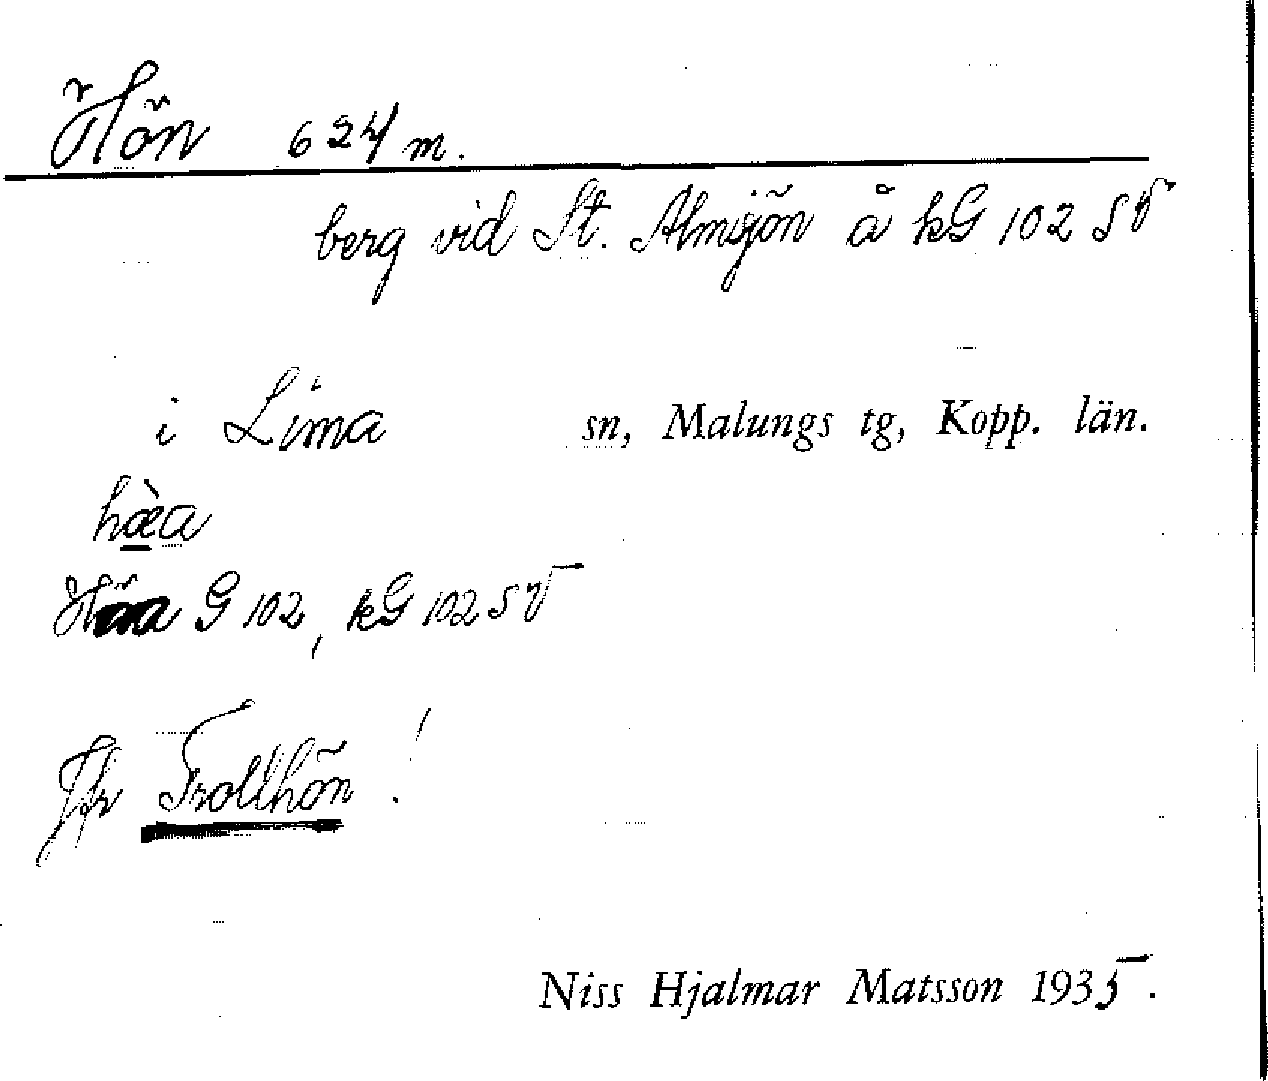 Hön 624 m.
berg vid St. Almsjön å kG 102 SV
i Lima sn, Malungs tg, Kopp. län.
hæ̀a
G 102, kG 102 SV
Jfr Trollhön !
Niss Hjalmar Matsson 1935.